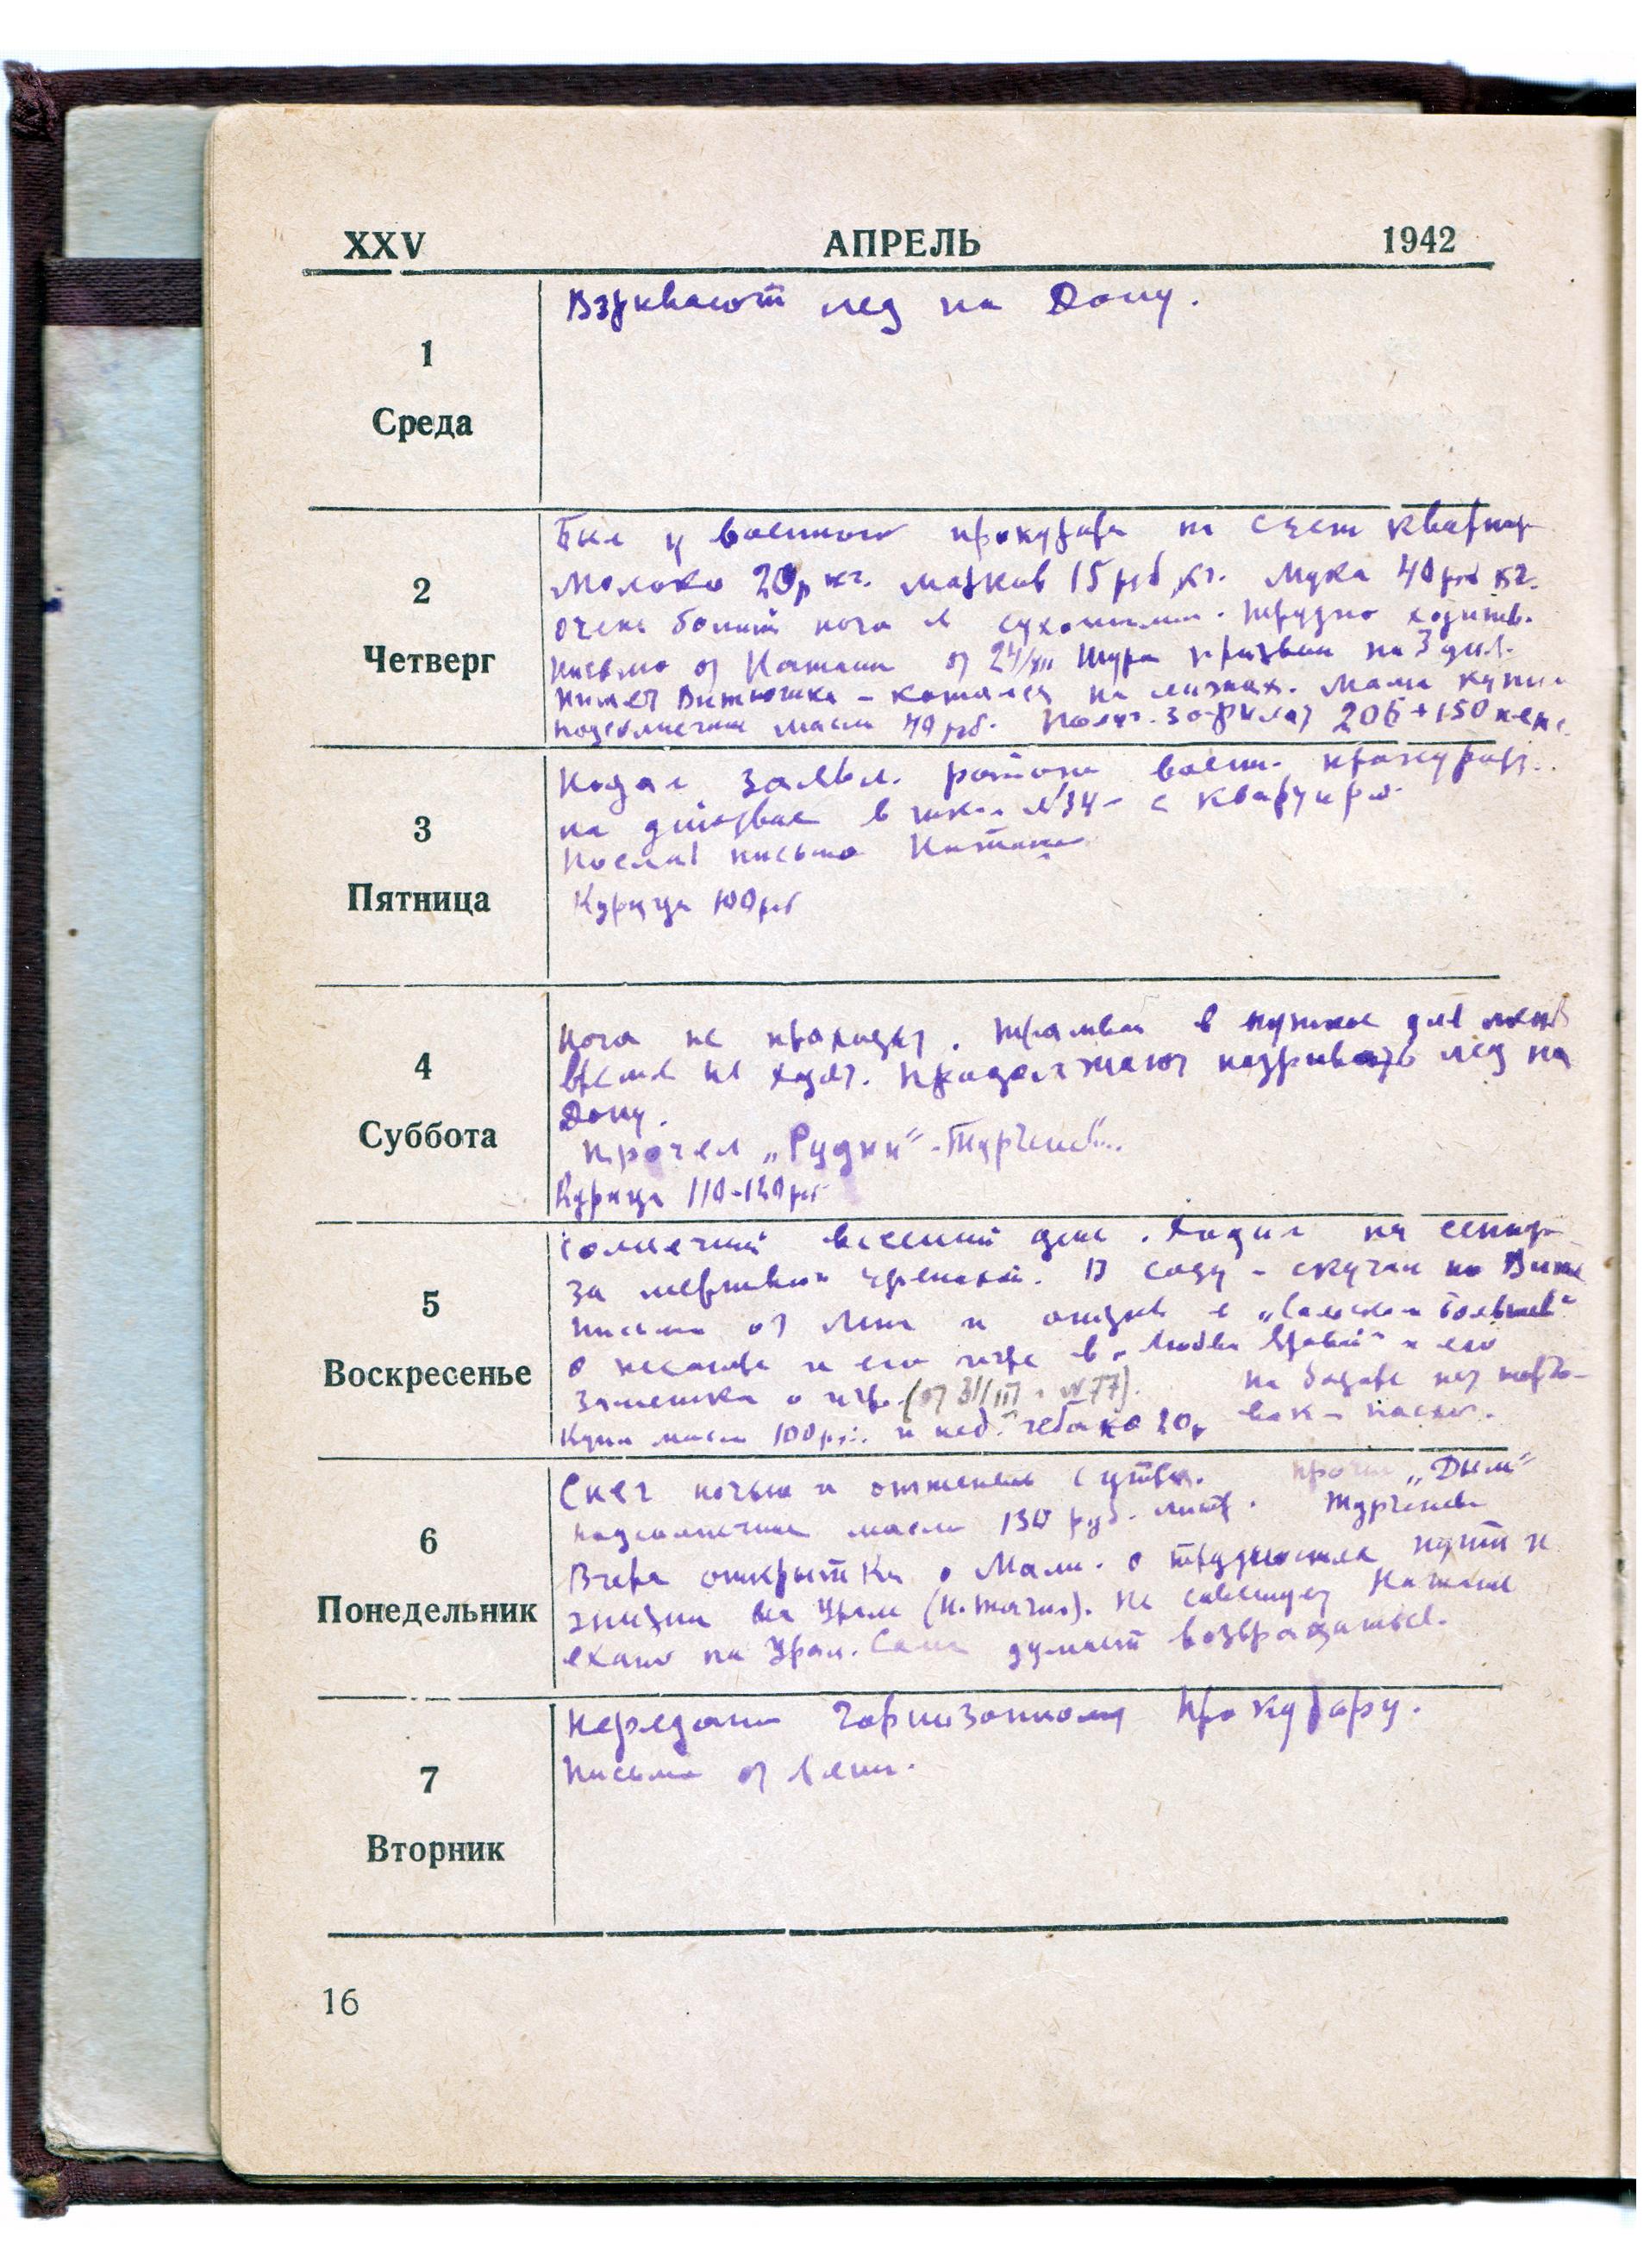 XXV АПРЕЛЬ 1942
1
Среда
Взрывают лед на Дону.
2
Четверг
Был у военного прокурора на счет квартир
Молоко 20р кг. морков 15 руб кг. Мука 40 руб кг.
очень болит нога и сухожилия. Трудно ходить.
Письмо от Наташи от 24/III Шура призван на 3 дня.
Пишет Витюшка – катался на лыжах. Мама купил
подсолнечное масло 40 руб. Получ. зарплат 206 + 150 пенс.
3
Пятница
Подал заявл. воен. прокурору.
на в шк. №34 - с квартиры
Послал письмо Наташе
Курица 100 руб
4
Суббота
Нога не проходит. Трамваи в нужное для меня
время не ходят. Продолжают подрывать лед на
Дону.
Прочел „Рудин" - Тургенев.
Курица 110-120 руб
5
Воскресенье
Солнечный весенний день. Ходил на
за В саду - скучал по Вите
Письмо от Лени и
о и его игре в „Любови Яровой" и его
заметка о игре (от 31/III № 77). На базаре нет
Купил масло 100 руб. и чебака 20р
6
Понедельник
Снег ночью и с утра. Прочел „Дым"
подсолнечное масло 130 руб. литр. Тургенева
Вчера открытка о Мани. о трудностях пути и
жизни на Урале (Н. Тагил). Не советует Наташе
ехать на Урал. Сама думает возвращаться.
7
Вторник
Передали гарнизонному прокурору.
Письмо от Лени.
16